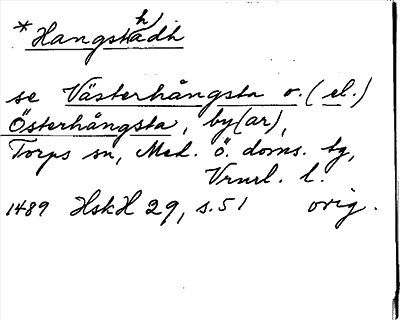 *Hangsthadh
se Västerhångsta o. (el.)
Österhångsta, by(ar),
Torps sn, Med. ö. doms. tg,
Vrnrl. l.
1489 HskH 29, s. 51 orig.